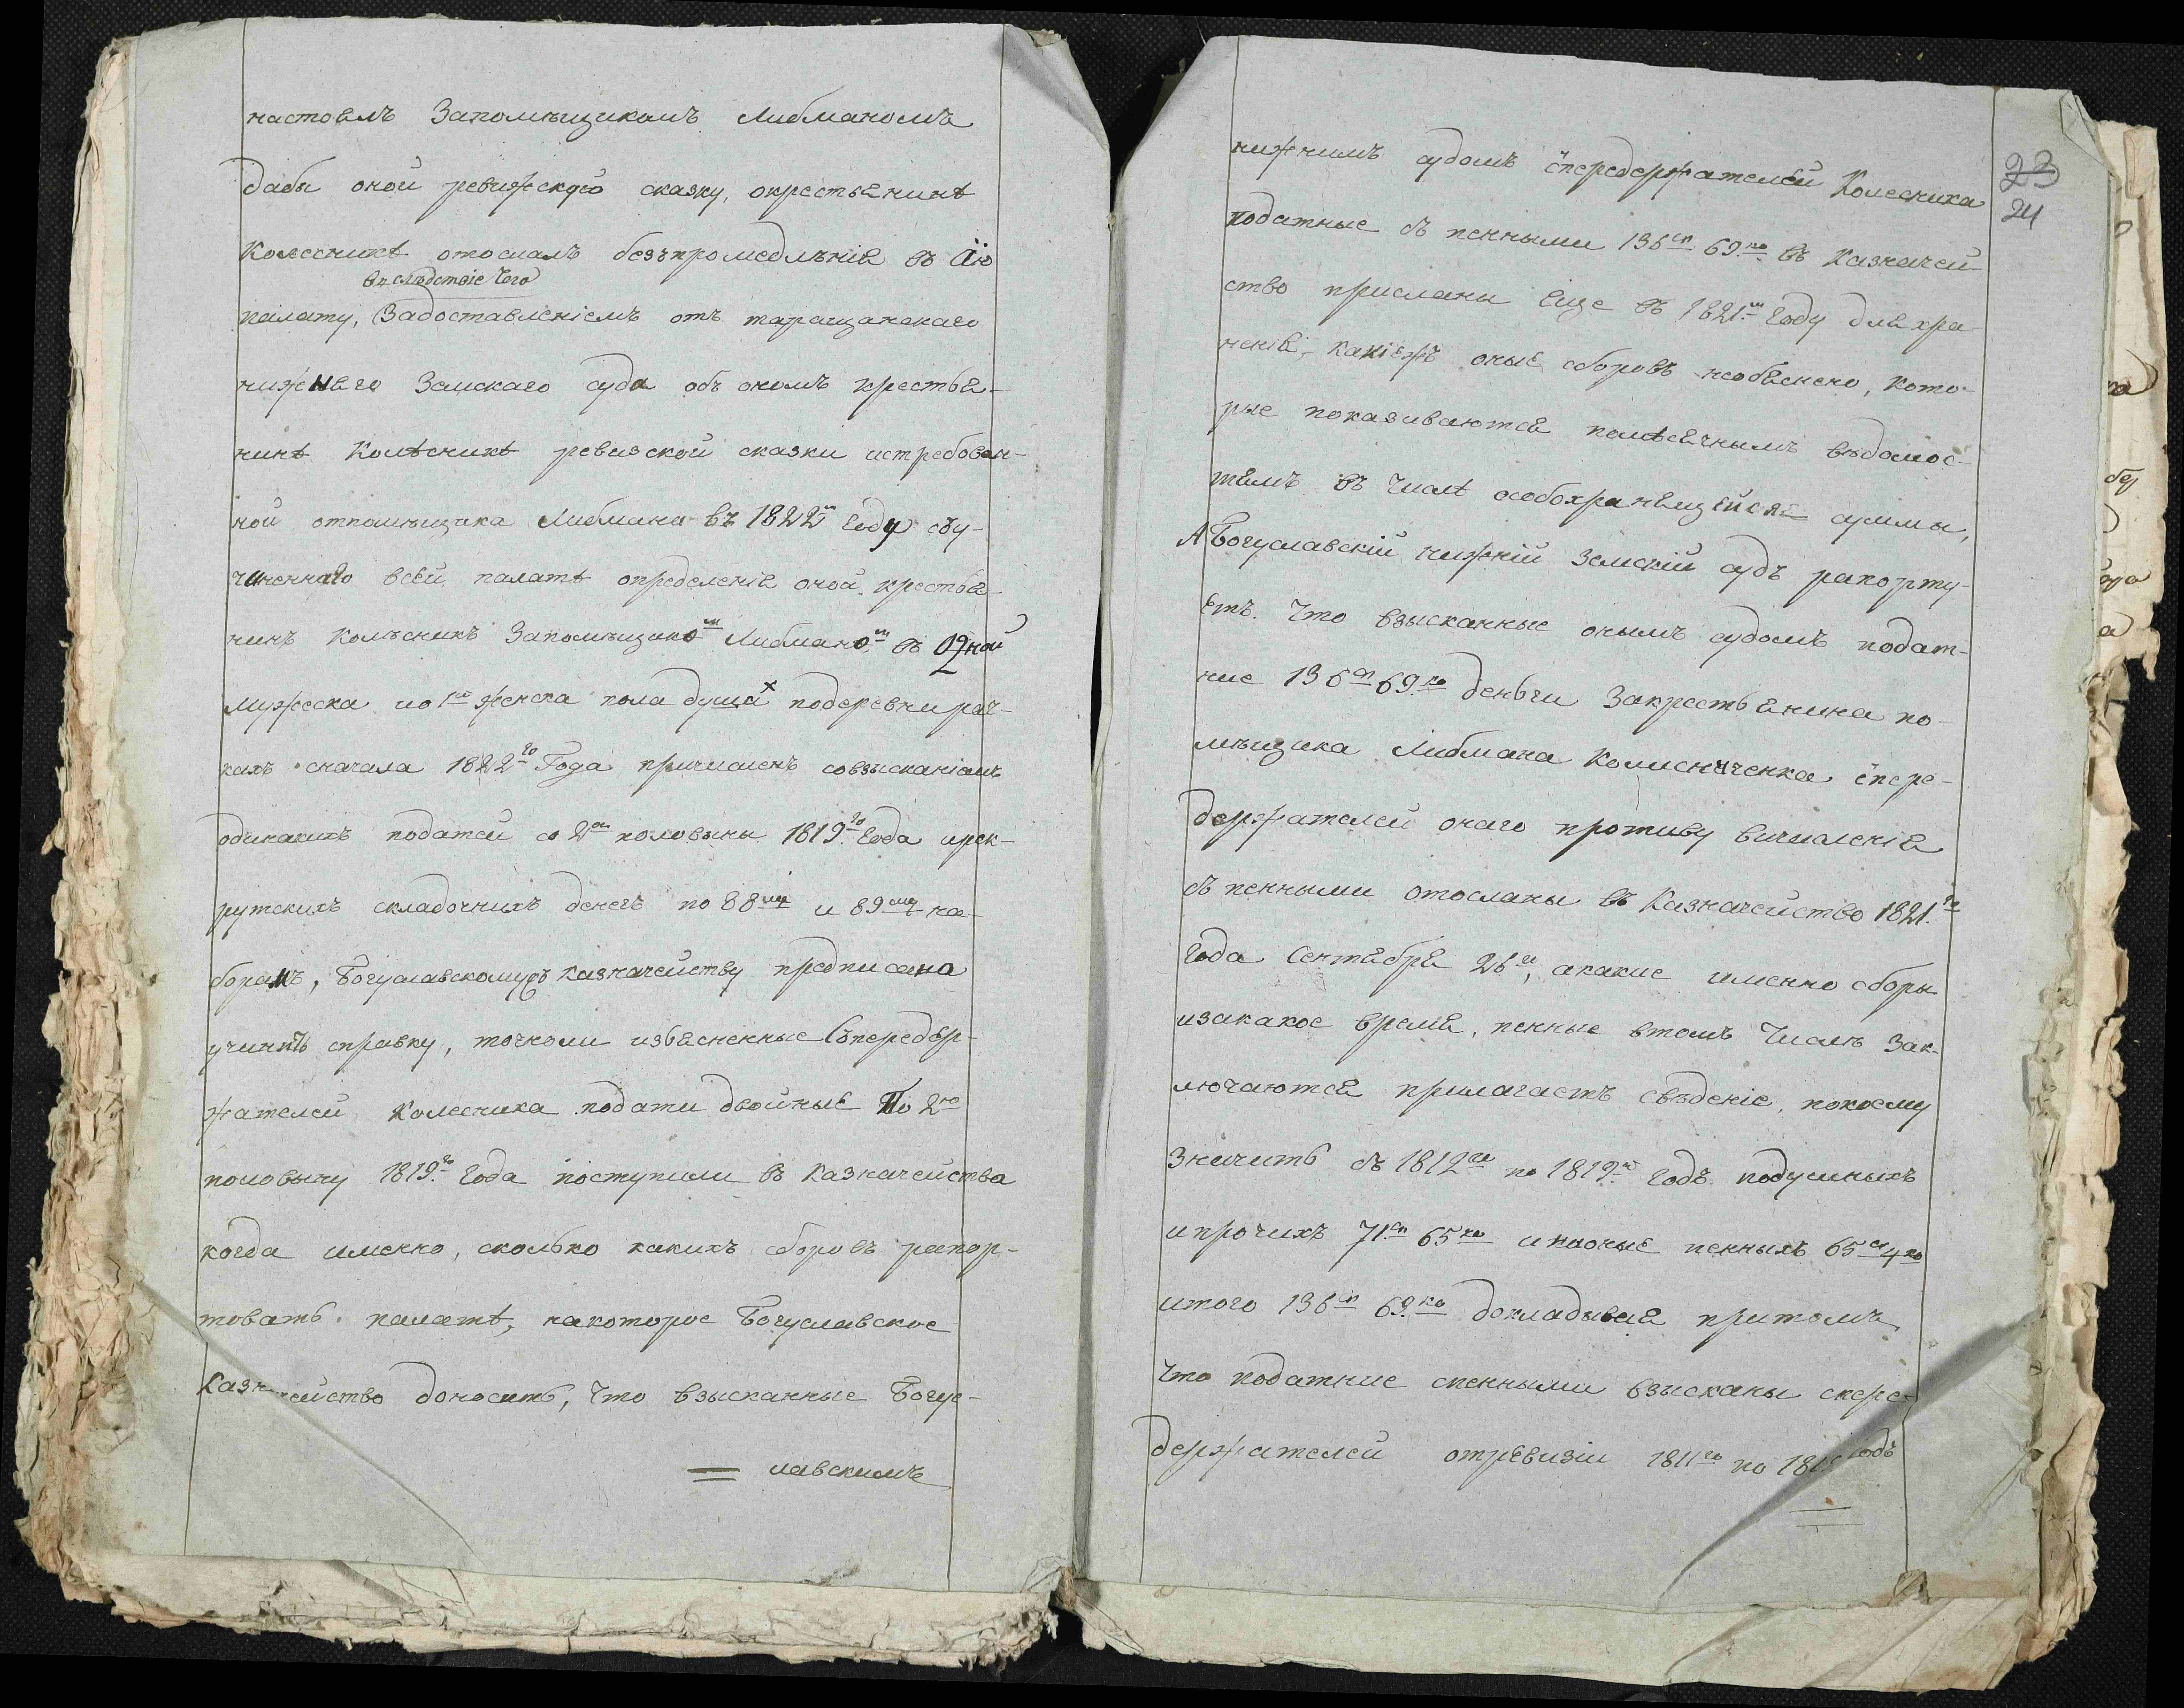 настоемъ Запомѣщикомъ Либманомъ
дабы оной ревижскую сказку, окрестьянинѣ
Колесникѣ отослалъ безъпромедлѣнія въ сію
Вслѣдствіе чего
палату, Задоставленіемъ отъ таращанскаго
нижняго Земскаго суда объ ономъ крестья-
нинѣ Колѣсникѣ ревизской сказки истребован-
ной отпомѣщика Либмана въ 1822м Году съу-
чиненнаго всей палатѣ определенія оной крестья-
нинъ Колѣсникъ Запомѣщикомъ Либманомъ въ Одной
мужеска ио1ой женска пола душахъ подеревни рач-
кахъ сначала 1822го Года причисленъ совзысканіемъ
одинакихъ податей со 2ой половыны 1819го Года ирек-
рутскихъ складочнихъ денегъ по 88му и 89му на-
борамъ, Богуславскомуж казначейству предписано
учинить справку, точноли изъясненные Съпередер-
жателей Колесника подати двойные По 2ю
половыну 1819го Года поступили въ Казначейства
когда именно, сколько какихъ сборовъ рапор-
товать палатѣ, накоторое Богуславское
Казначейство доноситъ, Что взысканные Богу-
лавскимъ
23
24
нижнимъ судомъ спередержателей Колесника
податные съ пенными 136ру 69ко въ Казначей-
ство присланы еще въ 1821м Году для хра-
ненія, каніежъ оные сборовъ необяснено, кото-
рые показиваются помѣсячнымъ вѣдомос-
тямъ въ Числѣ особохранящейся суммы,
А Богуславскій нижній земскій судъ рапорту-
етъ. Что взысканные онымъ судомъ подат-
ние 136ру 69ко деньги Закрестьянина по-
мѣщика Либмана Колисниченка спере-
держателей онаго противу вичисленія
съ пенными отосланы въ Казначейство 1821го
Года Сентября 26го, акакие именно сборы
изакакое время, пенные втомъ Числѣ Зак-
лючаются прилагаетъ свѣденіе, покоему
Значитъ съ 1812го по 1819й Годъ подушныхъ
ипрочихъ 71ру 65ко инаоные пенныхъ 65ру 4ко
итого 136ру 69ко докладывая притомъ
Что податние спенными взысканы спере-
держателей отревизіи 1811го по 181 Годъ